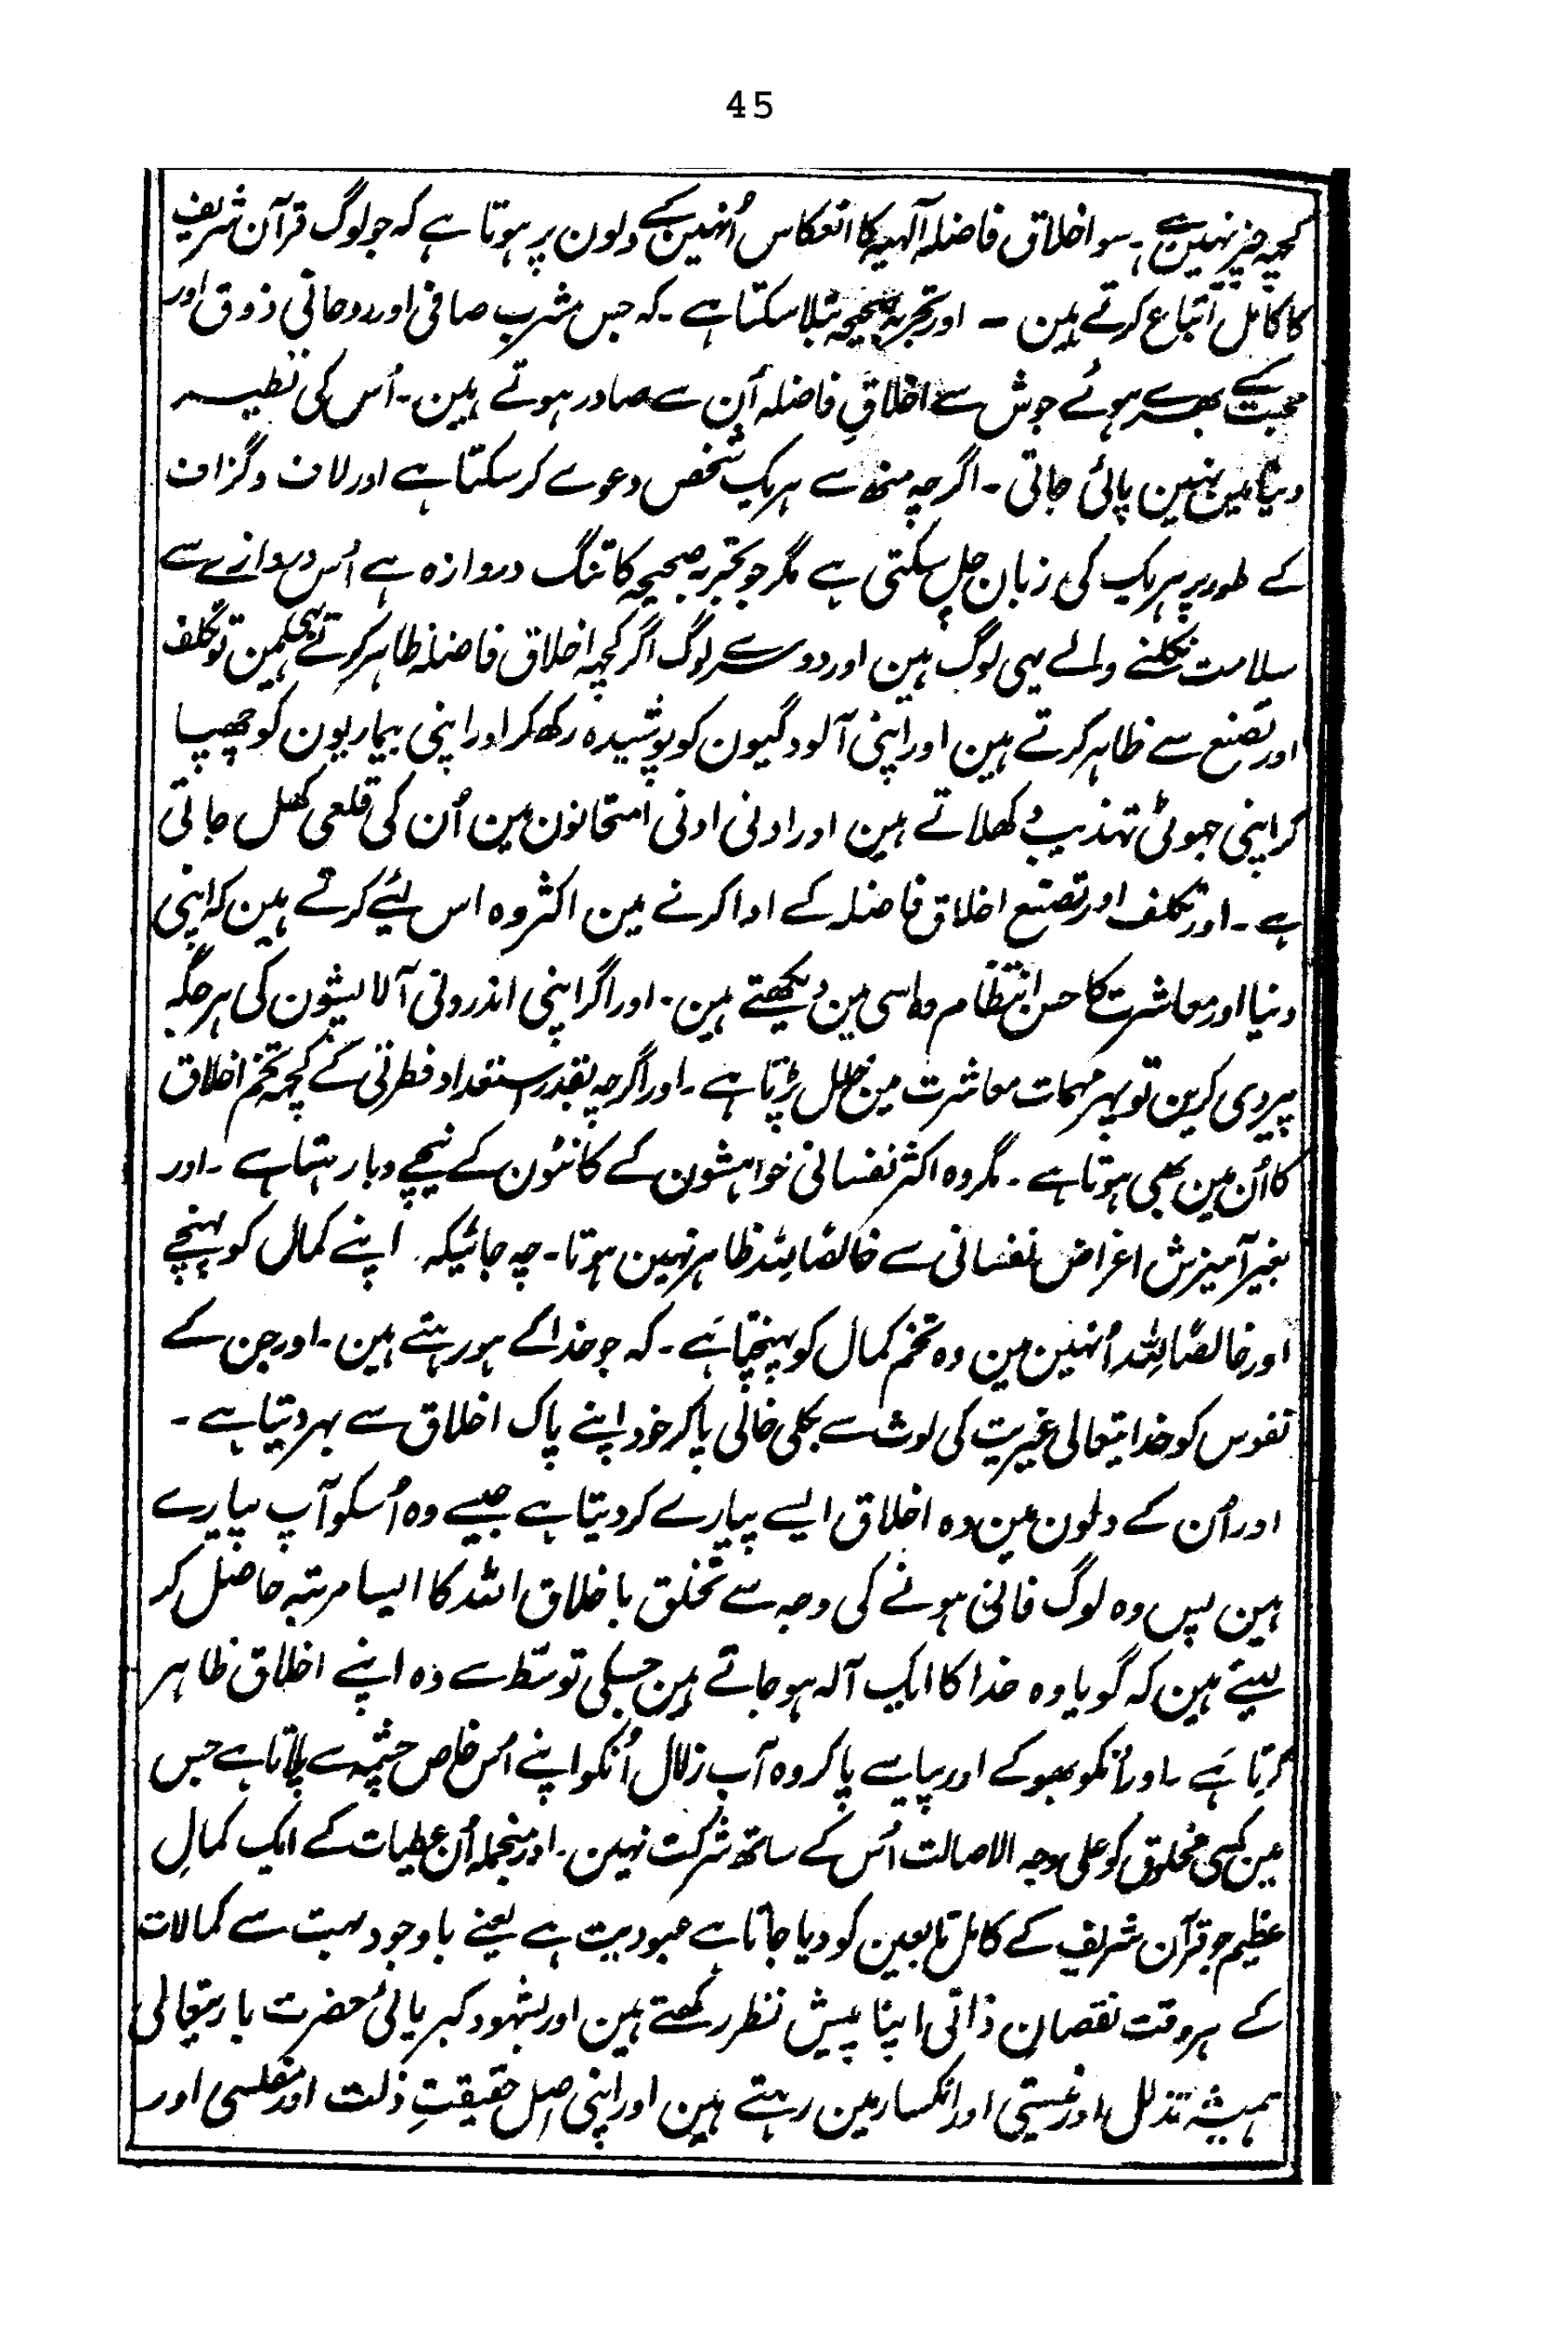 45
کچہہ چیز نہین ہے۔ سو اخلاق فاضلہ الٰہیہ کا انعکاس اُنہین کے دلون پر ہوتا ہے کہ جو لوگ قرآن شریف
کا کامل اتباع کرتے ہین ۔ اور تجربہ صحیحہ بتلا سکتا ہے ۔ کہ جس مشرب صافی اور روحانی ذوق اور
محبت کے بھرے ہوئے جوش سے اخلاقِ فاضلہ اُن سے صادر ہوتے ہین ۔ اُس کی نظیر
دنیا مین نہین پائی جاتی ۔ اگرچہ منھ سے ہریک شخص دعوے کر سکتا ہے اور لاف و گزاف
کے طور پر ہریک کی زبان چل سکتی ہے مگر جو تجربہ صحیحہ کا تنگ دروازہ ہے اُس دروازے سے
سلامت نکلنے والے یہی لوگ ہین اور دوسرے لوگ اگر کچہہ اخلاق فاضلہ ظاہر کرتے بھی ہین تو تکلف
اور تصنع سے ظاہر کرتے ہین اور اپنی آلودگیون کو پوشیدہ رکھ کر اور اپنی بیماریون کو چھپا
کر اپنی جھوٹی تہذیب دکھلاتے ہین اور ادنی ادنی امتحانون مین اُن کی قلعی کھل جاتی
ہے ۔ اور تکلف اور تصنع اخلاق فاضلہ کے ادا کرنے مین اکثر وہ اس لیئے کرتے ہین کہ اپنی
دنیا اور معاشرت کا حسن انتظام وہ اسی مین دیکھتے ہین ۔ اور اگر اپنی اندرونی آلایشون کی ہر جگہ
پیروی کرین تو پہر مہمات معاشرت مین خلل پڑتا ہے ۔ اور اگرچہ بقدر استعداد فطرتی کے کچہہ تخم اخلاق
کا اُن مین بھی ہوتا ہے ۔ مگر وہ اکثر نفسانی خواہشون کے کانٹون کے نیچے دبا رہتا ہے ۔ اور
بغیر آمیزش اغراض نفسانی سے خالصًا للہ ظاہر نہین ہوتا ۔ چہ جائیکہ اپنے کمال کو پہنچے
اور خالصًا للہ اُنہین مین وہ تخم کمال کو پہنچتا ہے ۔ کہ جو خدا کے ہو رہتے ہین ۔ اور جن کے
نفوس کو خدایتعالی غیریت کی لوث سے بکلی خالی پا کر خود اپنے پاک اخلاق سے بہر دیتا ہے ۔
اور اُن کے دلون مین وہ اخلاق ایسے پیارے کر دیتا ہے جیسے وہ اُسکو آپ پیارے
ہین پس وہ لوگ فانی ہونے کی وجہ سے تخلق باخلاق اللہ کا ایسا مرتبہ حاصل کر
لیتے ہین کہ گویا وہ خدا کا ایک آلہ ہو جاتے ہین جسکی توسط سے وہ اپنے اخلاق ظاہر
کرتا ہے ۔ اور اُنکو بھوکے اور پیاسے پا کر وہ آب زلال اُنکو اپنے اُس خاص چشمہ سے پلاتا ہے جس
مین کسی مخلوق کو علی وجہ الاصالت اُس کے ساتھ شرکت نہین ۔ اور منجملہ اُن عطیات کے ایک کمالِ
عظیم جو قرآن شریف کے کامل تابعین کو دیا جاتا ہے عبودیت ہے یعنے باوجود بہت سے کمالات
کے ہر وقت نقصان ذاتی اپنا پیش نظر رکھتے ہین اور بشہود کبریائی حضرت باریتعالی
ہمیشہ تذلل اور نیستی اور انکسار مین رہتے ہین اور اپنی اصل حقیقتِ ذلت اور مفلسی اور